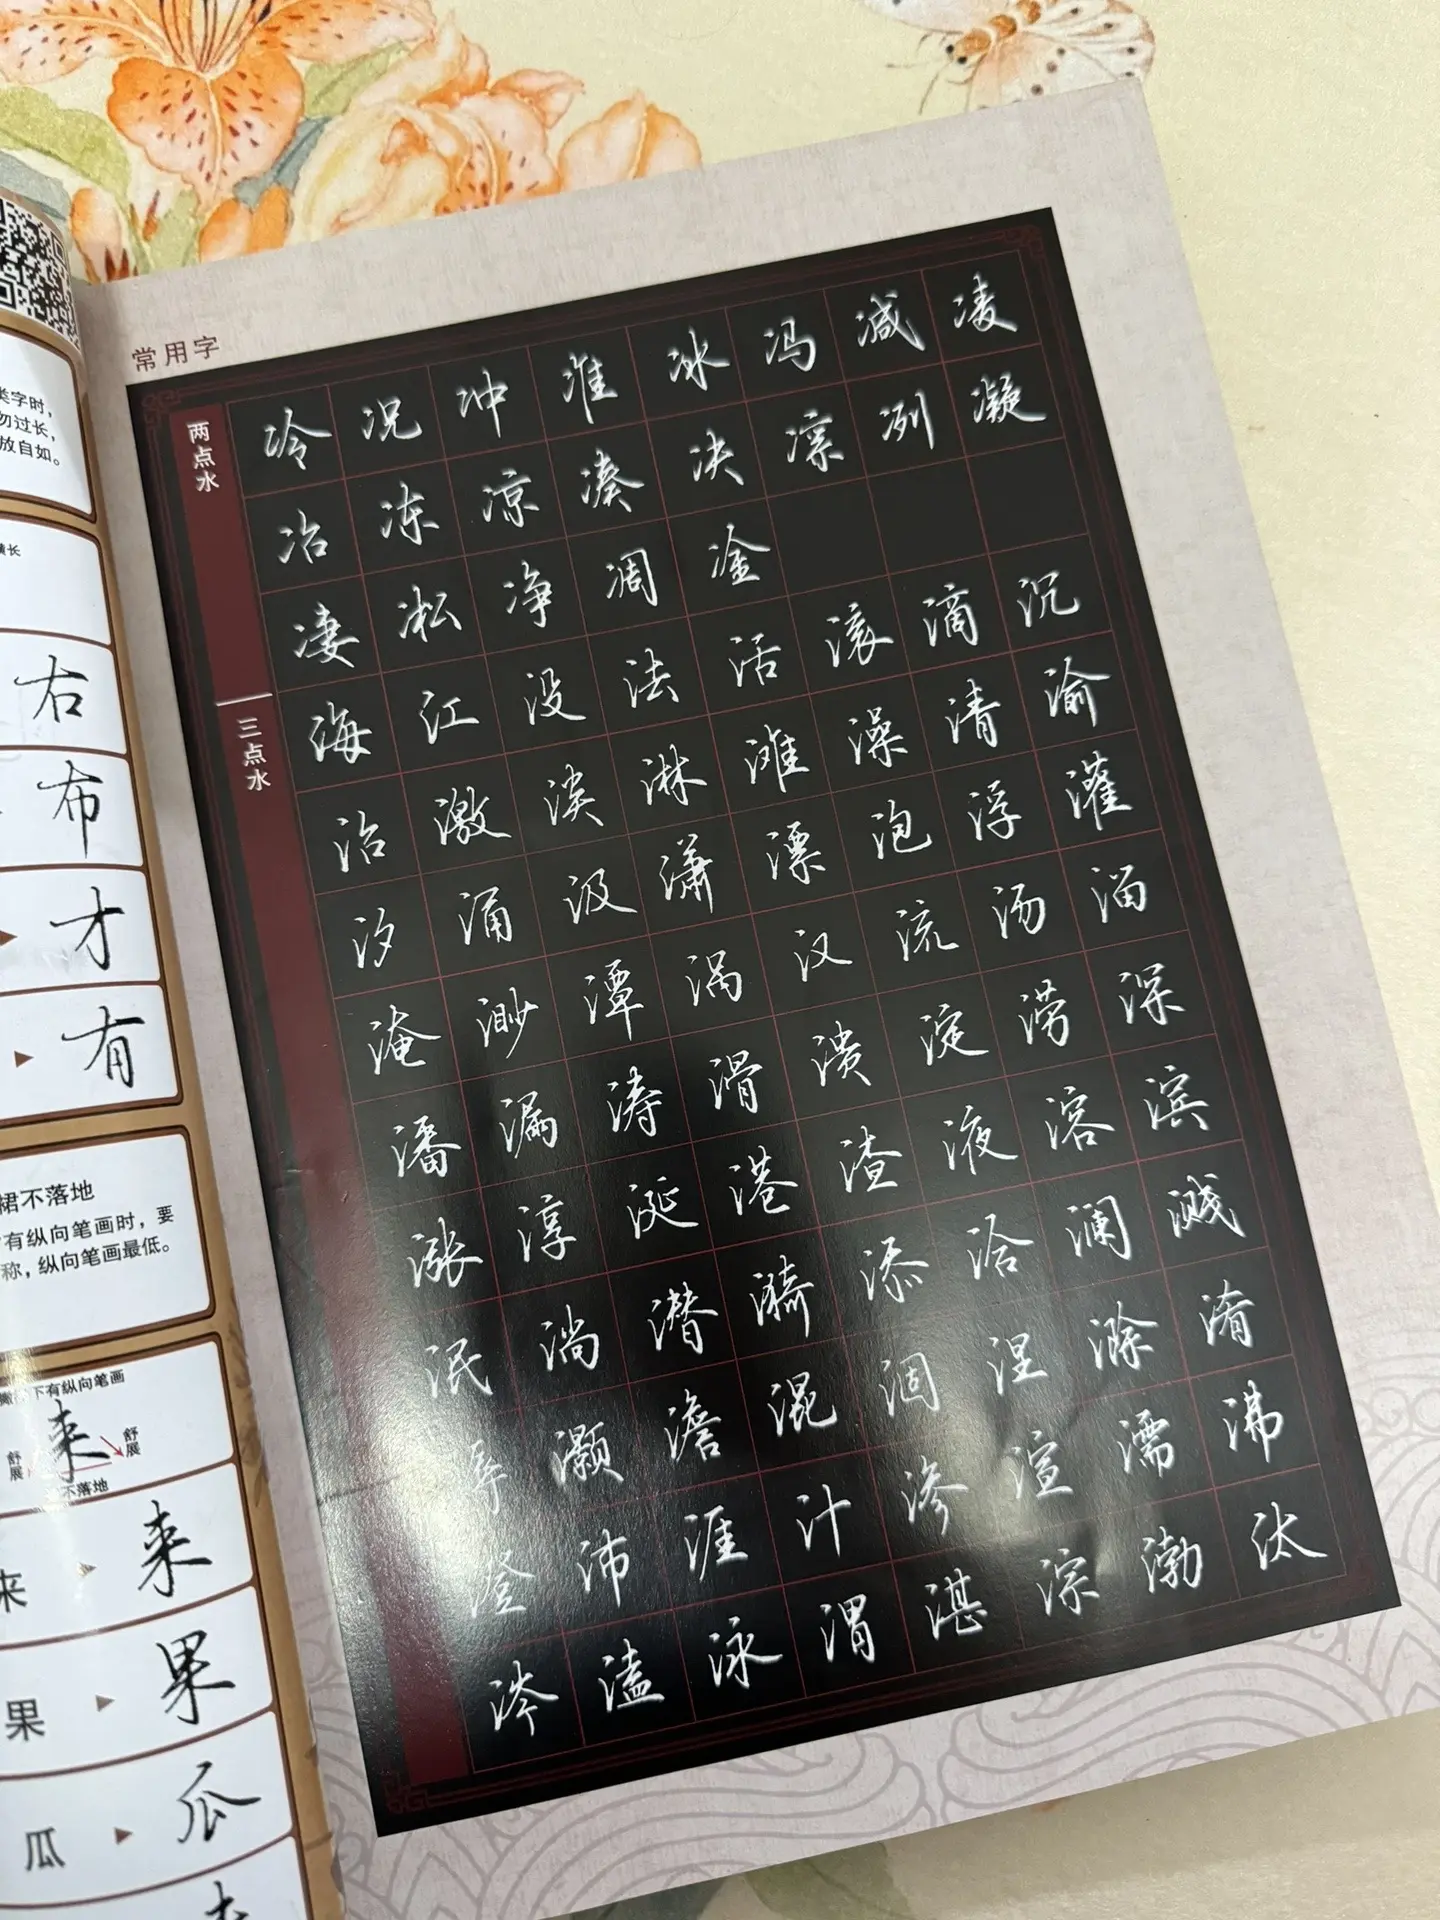 常用字
两点水
冷况冲准冰冯减凌
冶冻凉凑决凛冽凝
凄凇净凋淦
三点水
海江没法活滚滴沉
治激淡淋滩澡清渝
汐涌汲潇漂泡浮灌
淹渺潭涡汉流汤淄
潘漏涛滑溃淀涝深
涨淳涎港渣液溶滨
泯淌潜漪添洽澜溅
浔灏澹混涸涅滁淆
澄沛涯汁渗渲濡沸
涔溘泳渭湛淙渤汰
类字时，
勿过长，
放自如。
横长
右
布
才
有
裙不落地
有纵向笔画时，要
称，纵向笔画最低。
下有纵向笔画
舒展
来
舒展
不落地
来 来
果 果
瓜 瓜